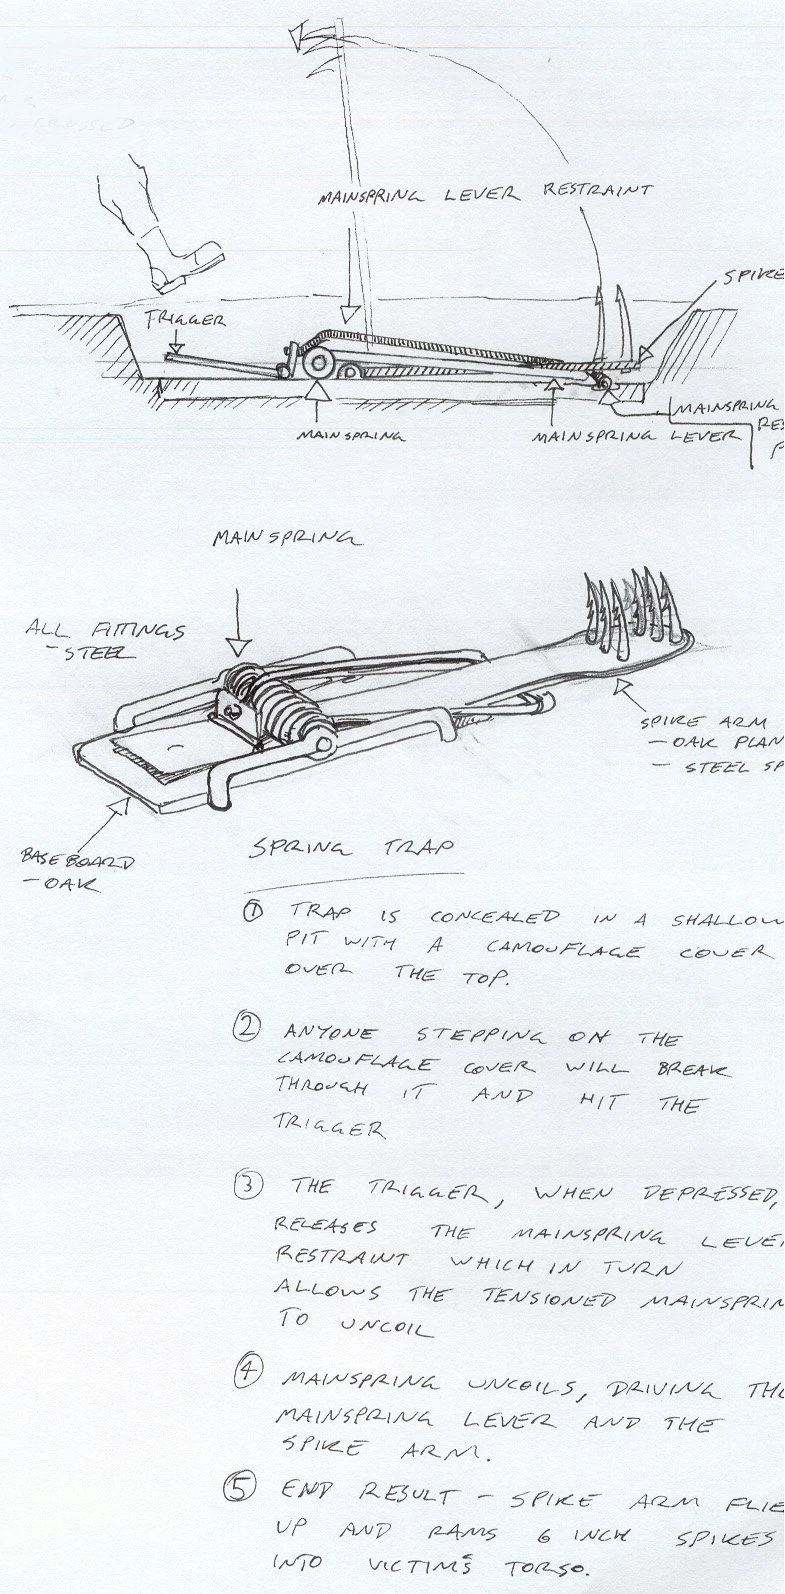 MAINSPRING LEVER RESTRAINT
SPIKE
TRIGGER
MAINSPRING
MAINSPRING LEVER
MAINSPRING
RES
P
MAINSPRING
ALL FITTINGS
- STEEL
SPIKE ARM
- OAK PLAN
- STEEL SP
BASEBOARD
- OAK
SPRING TRAP
① TRAP IS CONCEALED IN A SHALLOW
PIT WITH A CAMOUFLAGE COVER
OVER THE TOP.
② ANYONE STEPPING ON THE
CAMOUFLAGE COVER WILL BREAK
THROUGH IT AND HIT THE
TRIGGER
③ THE TRIGGER, WHEN DEPRESSED,
RELEASES THE MAINSPRING LEVE
RESTRAINT WHICH IN TURN
ALLOWS THE TENSIONED MAINSPRIN
TO UNCOIL
④ MAINSPRING UNCOILS, DRIVING THE
MAINSPRING LEVER AND THE
SPIKE ARM.
⑤ END RESULT - SPIKE ARM FLIE
UP AND RAMS 6 INCH SPIKES
INTO VICTIMS TORSO.